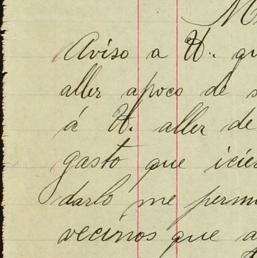 M
Aviso a U. qu
aller apoco de s
á U. aller de
gasto que icier
darlo me permi
vecinos que a